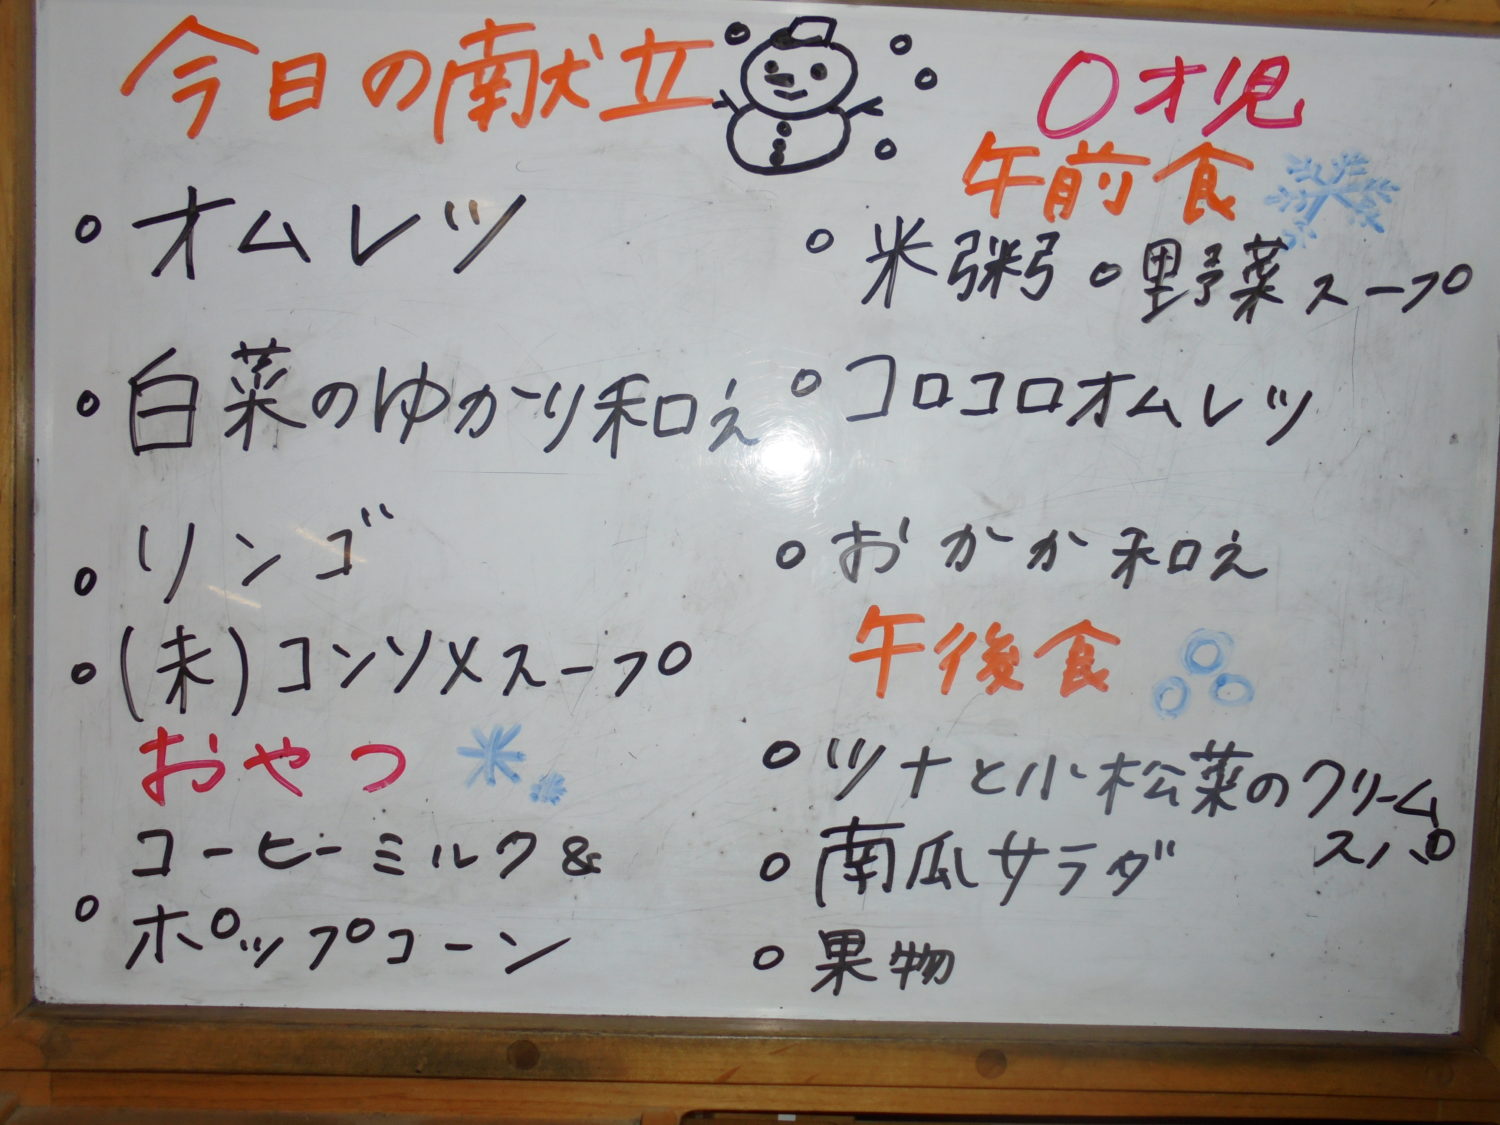 今日の献立
・オムレツ
・白菜のゆかり和え
・リンゴ
・(未)コンソメスープ
おやつ
・コーヒーミルク&
ポップコーン
0才児
午前食
・米粥・野菜スープ
・コロコロオムレツ
・おかか和え
午後食
・ツナと小松菜のクリーム
スパ
・南瓜サラダ
・果物